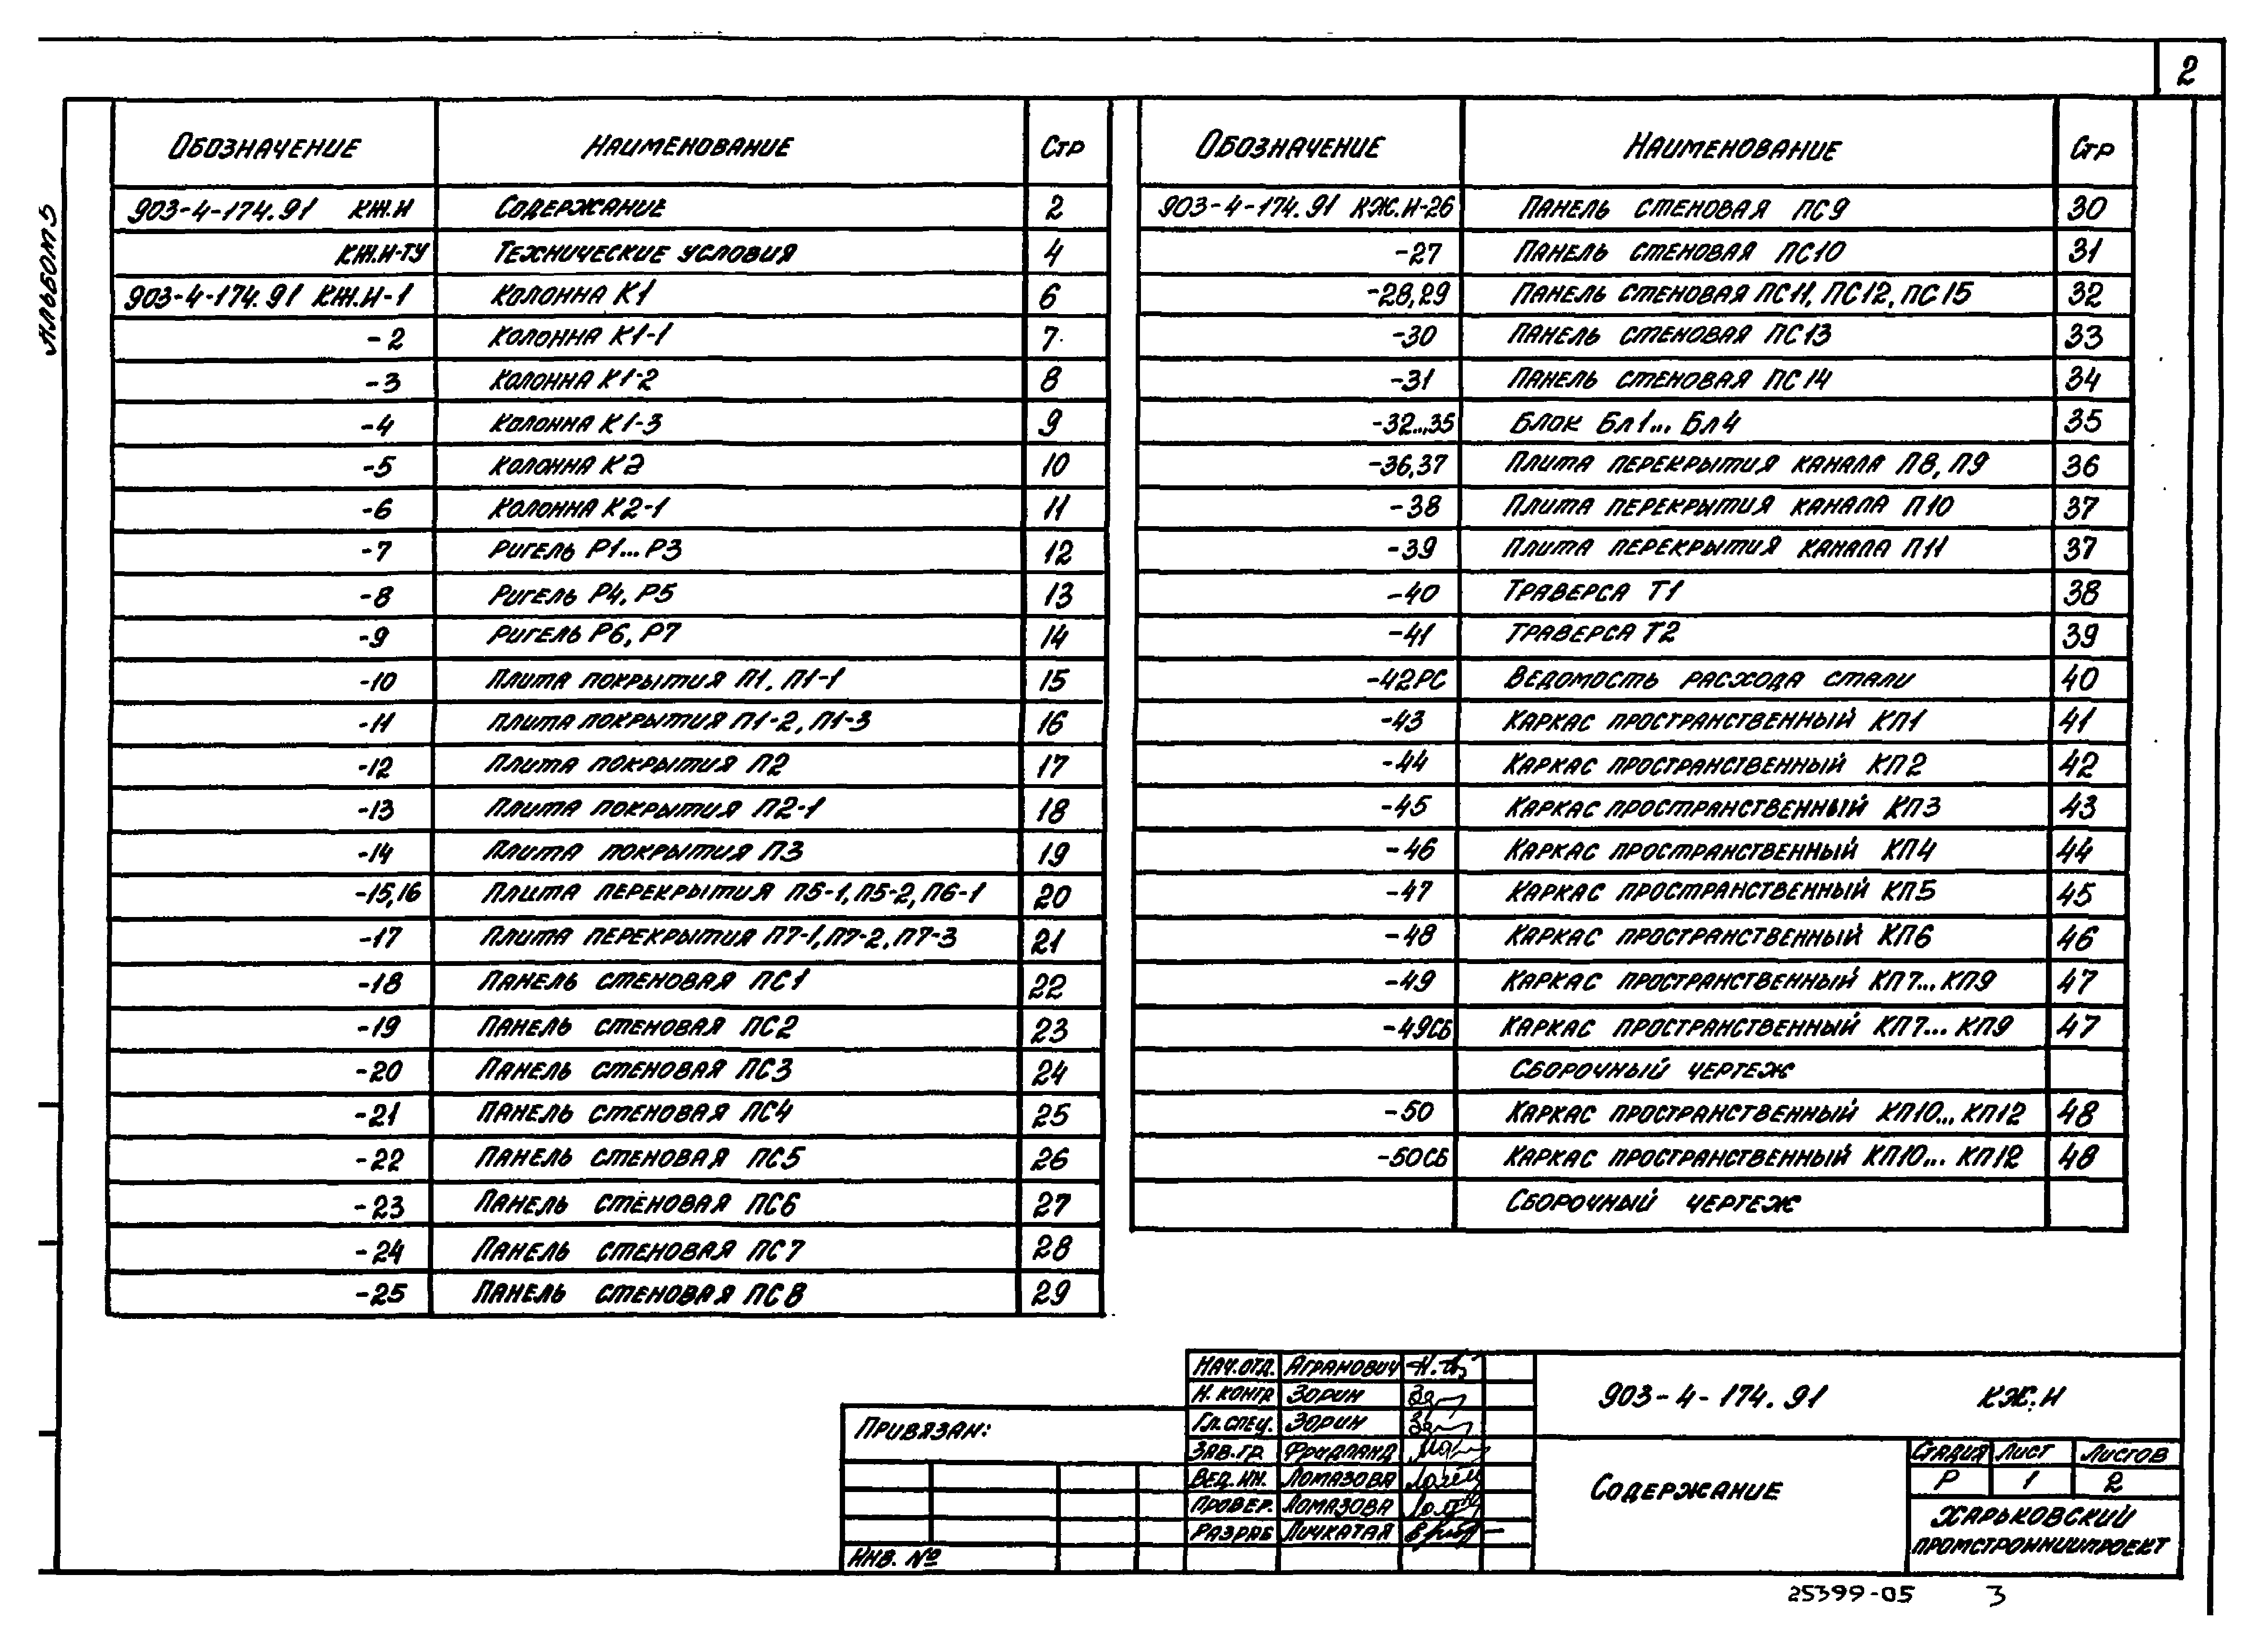 2
Альбом 5
Обозначение Наименование Стр
903-4-174.91 КЖ.И Содержание 2
КЖ.И-ТУ Технические условия 4
903-4-174.91 КЖ.И-1 Колонна К1 6
-2 Колонна К1-1 7
-3 Колонна К1-2 8
-4 Колонна К1-3 9
-5 Колонна К2 10
-6 Колонна К2-1 11
-7 Ригель Р1...Р3 12
-8 Ригель Р4, Р5 13
-9 Ригель Р6, Р7 14
-10 Плита покрытия П1, П1-1 15
-11 Плита покрытия П1-2, П1-3 16
-12 Плита покрытия П2 17
-13 Плита покрытия П2-1 18
-14 Плита покрытия П3 19
-15,16 Плита перекрытия П5-1, П5-2, П6-1 20
-17 Плита перекрытия П7-1, П7-2, П7-3 21
-18 Панель стеновая ПС1 22
-19 Панель стеновая ПС2 23
-20 Панель стеновая ПС3 24
-21 Панель стеновая ПС4 25
-22 Панель стеновая ПС5 26
-23 Панель стеновая ПС6 27
-24 Панель стеновая ПС7 28
-25 Панель стеновая ПС8 29
Обозначение Наименование Стр
903-4-174.91 КЖ.И-26 Панель стеновая ПС9 30
-27 Панель стеновая ПС10 31
-28,29 Панель стеновая ПС11, ПС12, ПС15 32
-30 Панель стеновая ПС13 33
-31 Панель стеновая ПС14 34
-32...35 Блок Бл1... Бл4 35
-36,37 Плита перекрытия канала П8, П9 36
-38 Плита перекрытия канала П10 37
-39 Плита перекрытия канала П11 37
-40 Траверса Т1 38
-41 Траверса Т2 39
-42РС Ведомость расхода стали 40
-43 Каркас пространственный КП1 41
-44 Каркас пространственный КП2 42
-45 Каркас пространственный КП3 43
-46 Каркас пространственный КП4 44
-47 Каркас пространственный КП5 45
-48 Каркас пространственный КП6 46
-49 Каркас пространственный КП7...КП9 47
-49СБ Каркас пространственный КП7...КП9 47
Сборочный чертеж
-50 Каркас пространственный КП10...КП12 48
-50СБ Каркас пространственный КП10...КП12 48
Сборочный чертеж
Привязан:
Инв. №
Нач.отд. Агранович
Н. контр Зорин
Гл. спец. Зорин
Зав. гр. Фридланд
Вед. ин. Ломазова
Провер. Ломазова
Разраб Личкатая
903-4-174.91 КЖ.И
Содержание
Стадия Лист Листов
Р 1 2
Харьковский
Промстройниипроект
25399-05 3